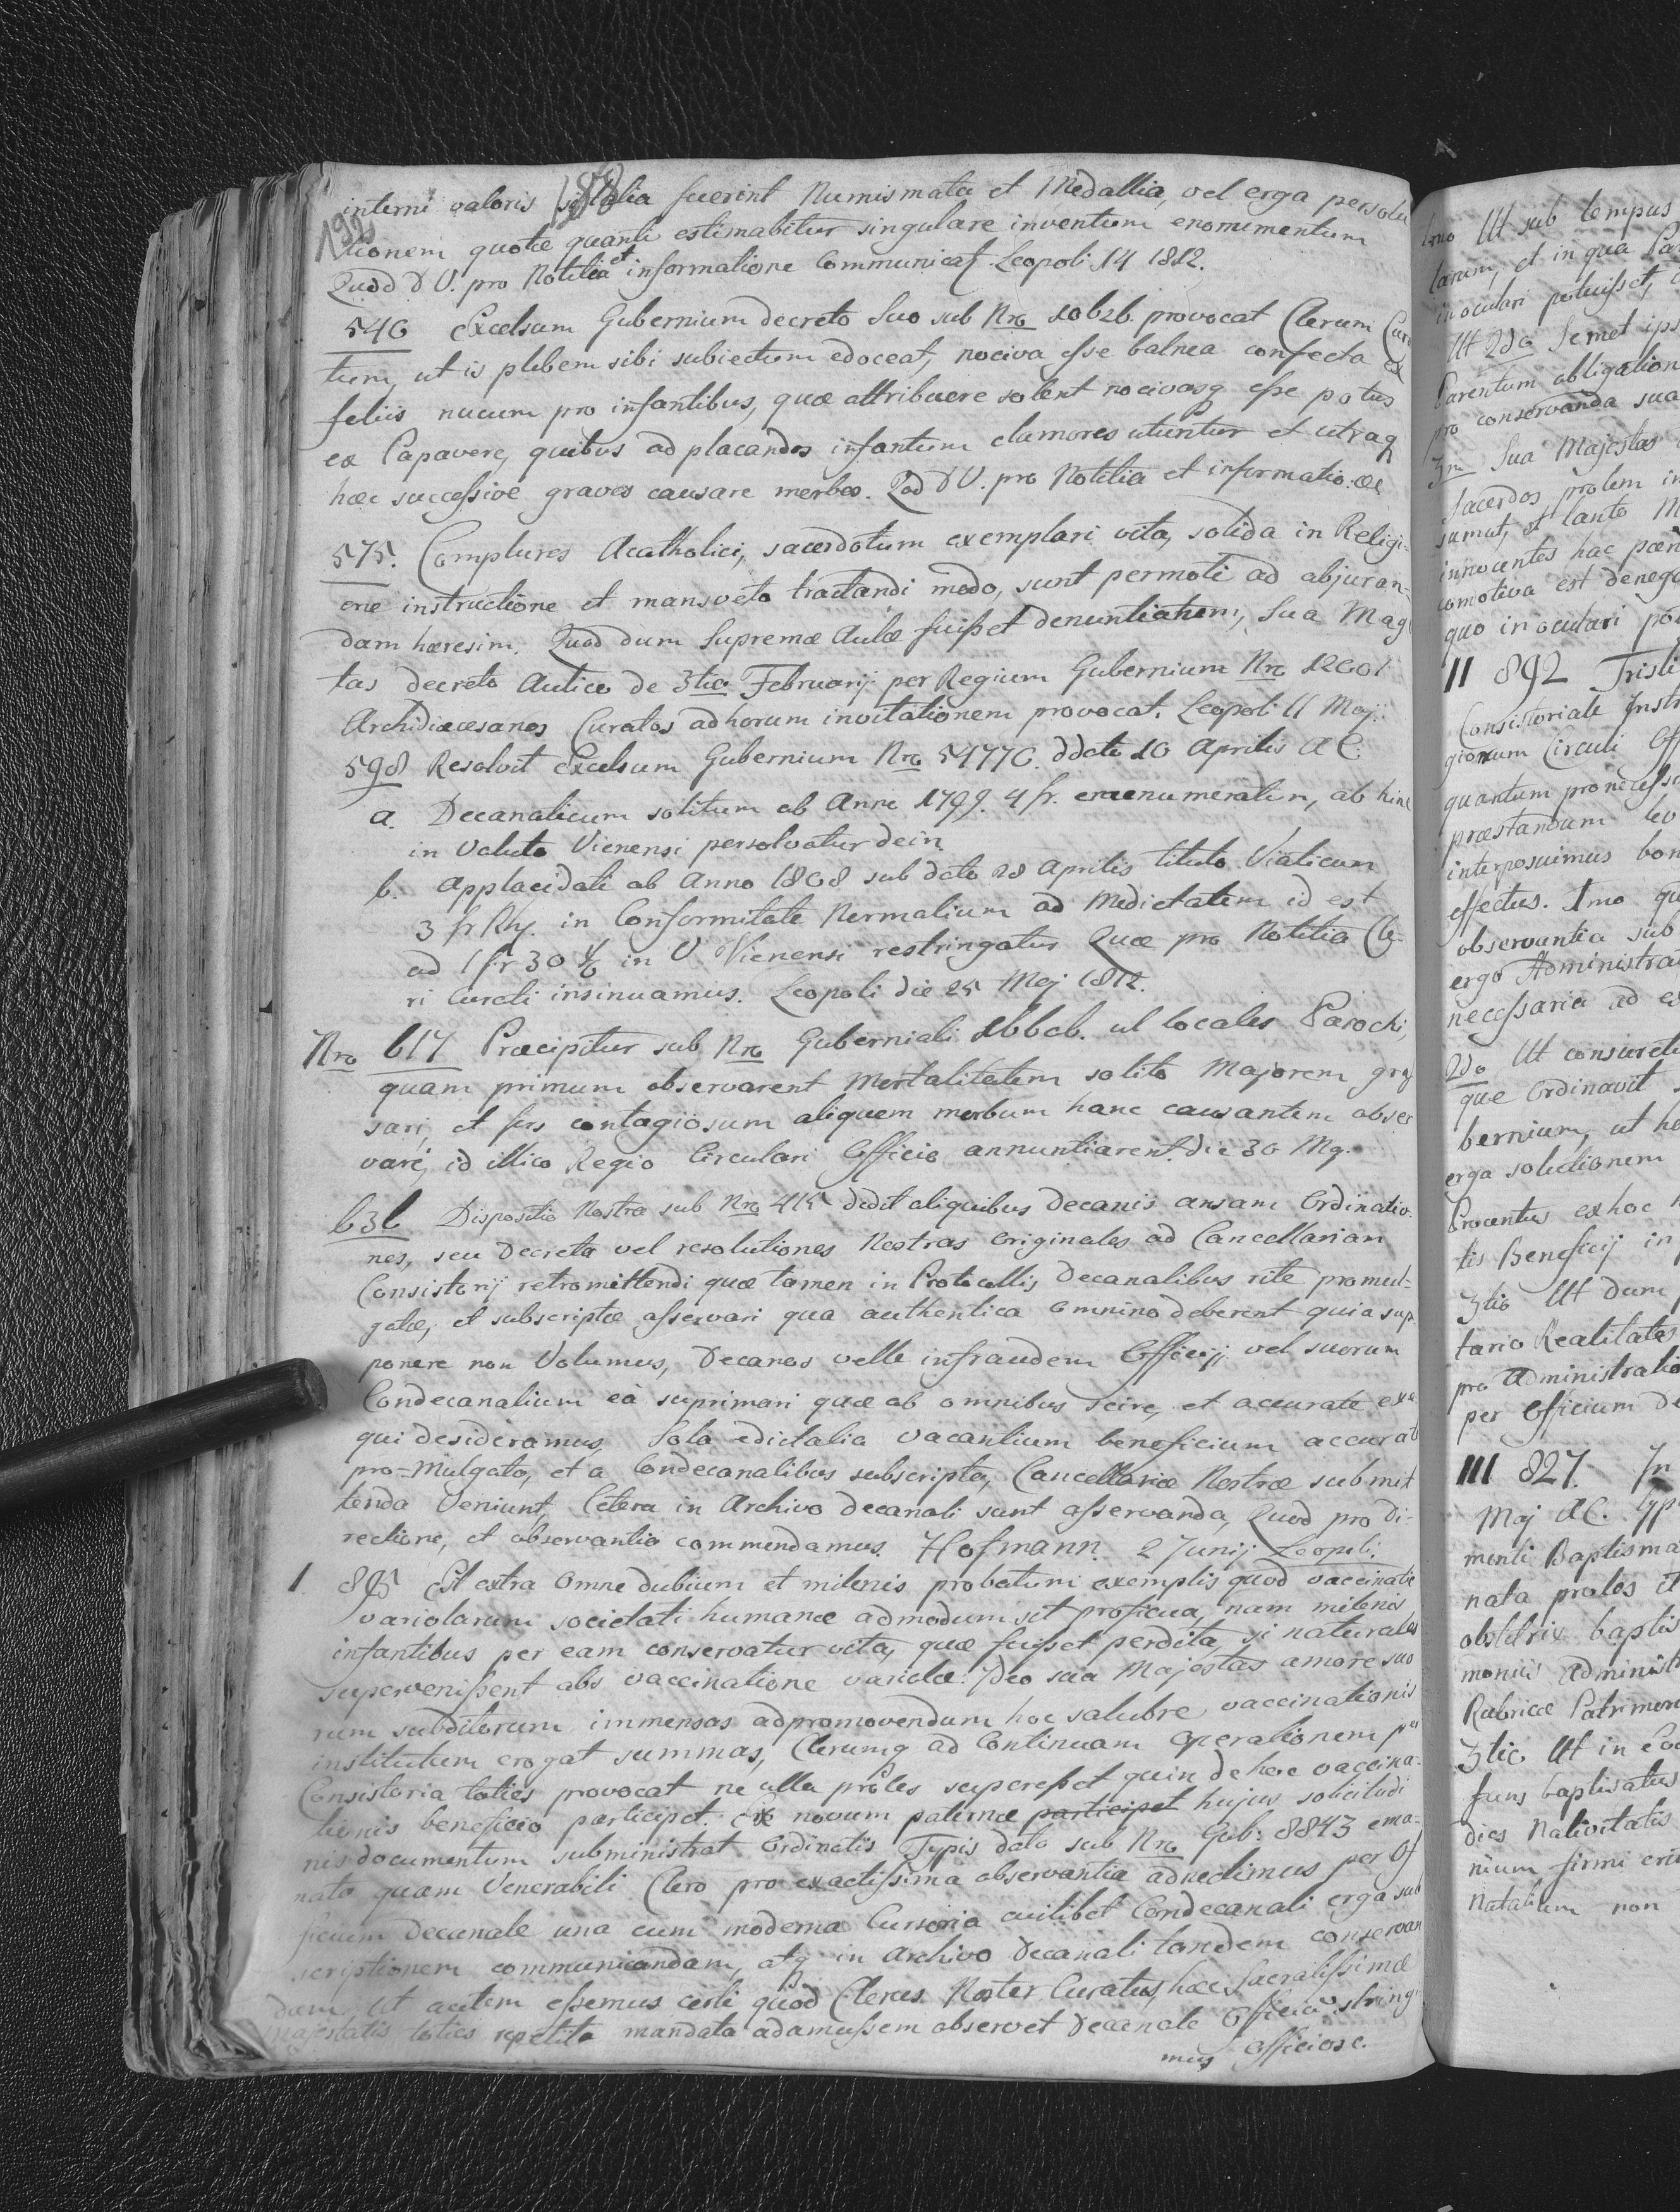 188
192
interni valoris si talia fuerint Numismata et Medallia, vel erga persolu
tionem quotae quanti estimabitur singulare inventum enomimentum
Quod D V. pro Notitia et informatione Communicat Leopoli 14 1812.
546 Excelsum Gubernium decreto Suo sub Nro 10626. provocat Clerum Cura
tum, ut is plebem sibi subiectum edoceat, nociva esse balnea confecta ex
foliis nucum pro infantibus, quae attribuere solent nocivosq esse potus
ex Papavere, quibus ad placandos infantum clamores utuntur et utraq
haec successive graves causare morbos. Qod D V. pro Notitia et informatio. ae
575. Complures Acatholici, sacerdotum exemplari vita, solida in Religi-
one instructione et mansveto tractandi modo, sunt permoti ad abjuran-
dam haeresim. Quod dum Supremae Aulae fuisset denuntiatum, Sua Mag
tas decreto Aulico de 3tia Februarij per Regium Gubernium Nro 12601
Archidiaecesanos Curatos ad horum invitationem provocat. Leopoli 11 Maj.
598 Resolvit Excelsum Gubernium Nro 54770. ddato 10 Aprilis AC.
a. Decanalicum solitum ab Anno 1799. 4 fr. enumeratim, ab hinc
in Valuta Vienensi persolvatur dein
b. applacidati ab Anno 1808 sub dato 28 Aprilis titulo Viaticum
3 fr Rhy. in Conformitate Normalium ad Medietatem id est
ad 1 fr 30 in V Vienensi restringatur Quae pro Notitia Cle-
ri Curati insinuamus. Leopoli die 25 Maj 1812.
Nro 617 Praecipitur sub Nro Guberniali 16606. ut locales Parochi,
quam primum observarent Mortalitatem solito Majorem gras
sari, et fors contagiosum aliquem morbum hanc causantem obser
vare, id illico Regio Circulari Officio annuntiarent. die 30 Mg.
636 Dispositio Nostra sub Nro 415 dedit aliquibus Decanis ansam Ordinatio-
nes, seu Decreta vel resolutiones Nostras originales ad Cancellariam
Consistorij retromittendi quae tamen in Protocollis Decanalibus rite promul-
gatae, et subscriptae asservari qua authentica omnino deberent quia sup
ponere non Volumus, Decanos velle infraudem Officij vel suorum
Condecanalium ea suprimari quae ab omnibus scire, et accurate exe
qui desideramus, Sola edictalia vacantium beneficium accurat
pro-Mulgato, et a Condecanalibus subscripta, Cancellariae Nostrae submit
tenda Veniunt, Cetera in Archivo Decanali sunt asservanda, Quod pro di-
rectione, et observantia commendamus. Hofmann. 2 Junij Leopoli.
I. 895 Est extra Omne dubium et milenis probatum exemplis quod vaccinatio
variolarum societati humanae admodum sit proficua, nam milenis
infantibus per eam conservatur vita, quae fuisset perdita, si naturales
supervenissent abs vaccinatione variolae. Ideo sua Majestas amore suo
rum subditorum immensas adpromovendum hoc salubre vaccinationis
institutum erogat summas, Clerumq ad Continuam Operationem per
Consistoria toties provocat ne ulla proles superesset quin de hoc vaccina-
tionis beneficio participet. Ex novum paternae participet hujus solicitudi
nis documentum subministrat Ordinatis Typis dato sub Nro Gub: 8843 ema-
nato quam Venerabili Clero pro exactissima observantia adnectimus per Of
ficium Decanale una cum moderna Cursoria cuilibet Condecanali erga sub
scriptionem communicandam, atq in Archivo Decanali tandem conservan
dam. Ut autem essemus certi quod Clerus Noster Curatus, haec Sacratissimae
Majestatis toties repetita mandata adamussem observet Decanale Officiu string
mus Officiose.
Imo Ut sub tempus
larum, et in qua Pa
inoculari potuisset,
Ut 2do Semet ips
Parentum obligation
pro conservanda sua
3tio Sua Majestas
Sacerdos prolem in
sumat, et tanto M
innocentes hac paen
comotiva est denega
quo inoculari po
II 892 Tristi
Consistoriale Instr
gionum Circuli Off
quantum pro necess
praestandum
interposuimus bon
effectus. Imo qu
observantia sub
ergo Administra
necessaria ad e
2do Ut conscret
que Ordinavit
bernium, ut
erga solutionem
Procentus ex hoc
tis Beneficij in
3tio Ut dum
tario Realitates
pro Administratio
per Officium De
III 827. In
Maj AC.
menti Baptisma
nata proles
obstetrix baptis
moniis Administ
Rubricae Patrimon
3tio Ut in
funs baptisatus
dies Nativitatis
nium firmi
Natalium non